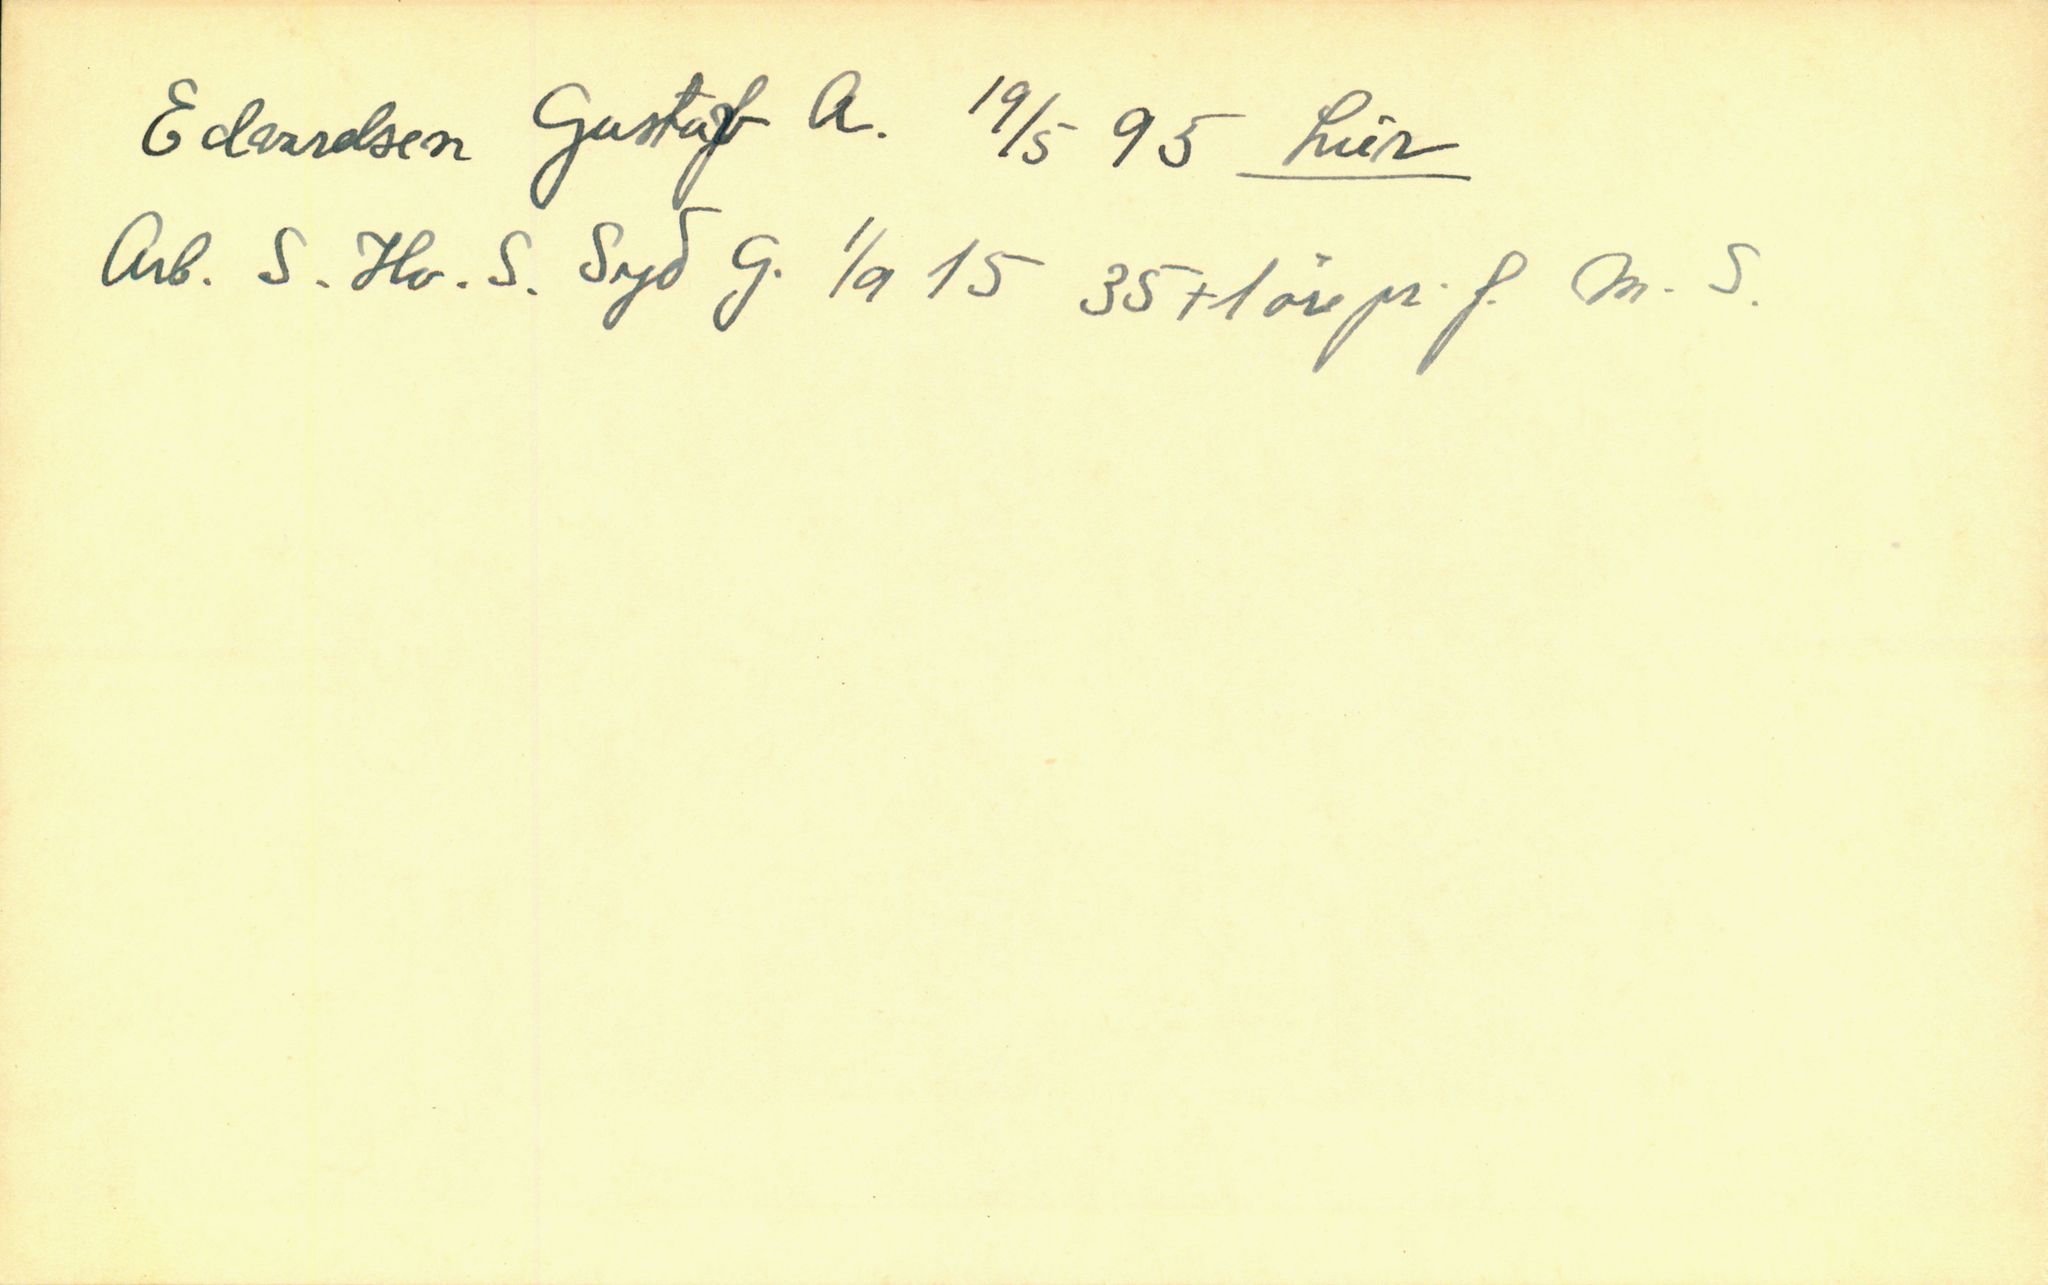 Edvardsen Gustaf A. 19/5 95 Lier
Arb. S. Hv. S. Syd G. 1/9 15 35+1 öre pr. f. M. S.